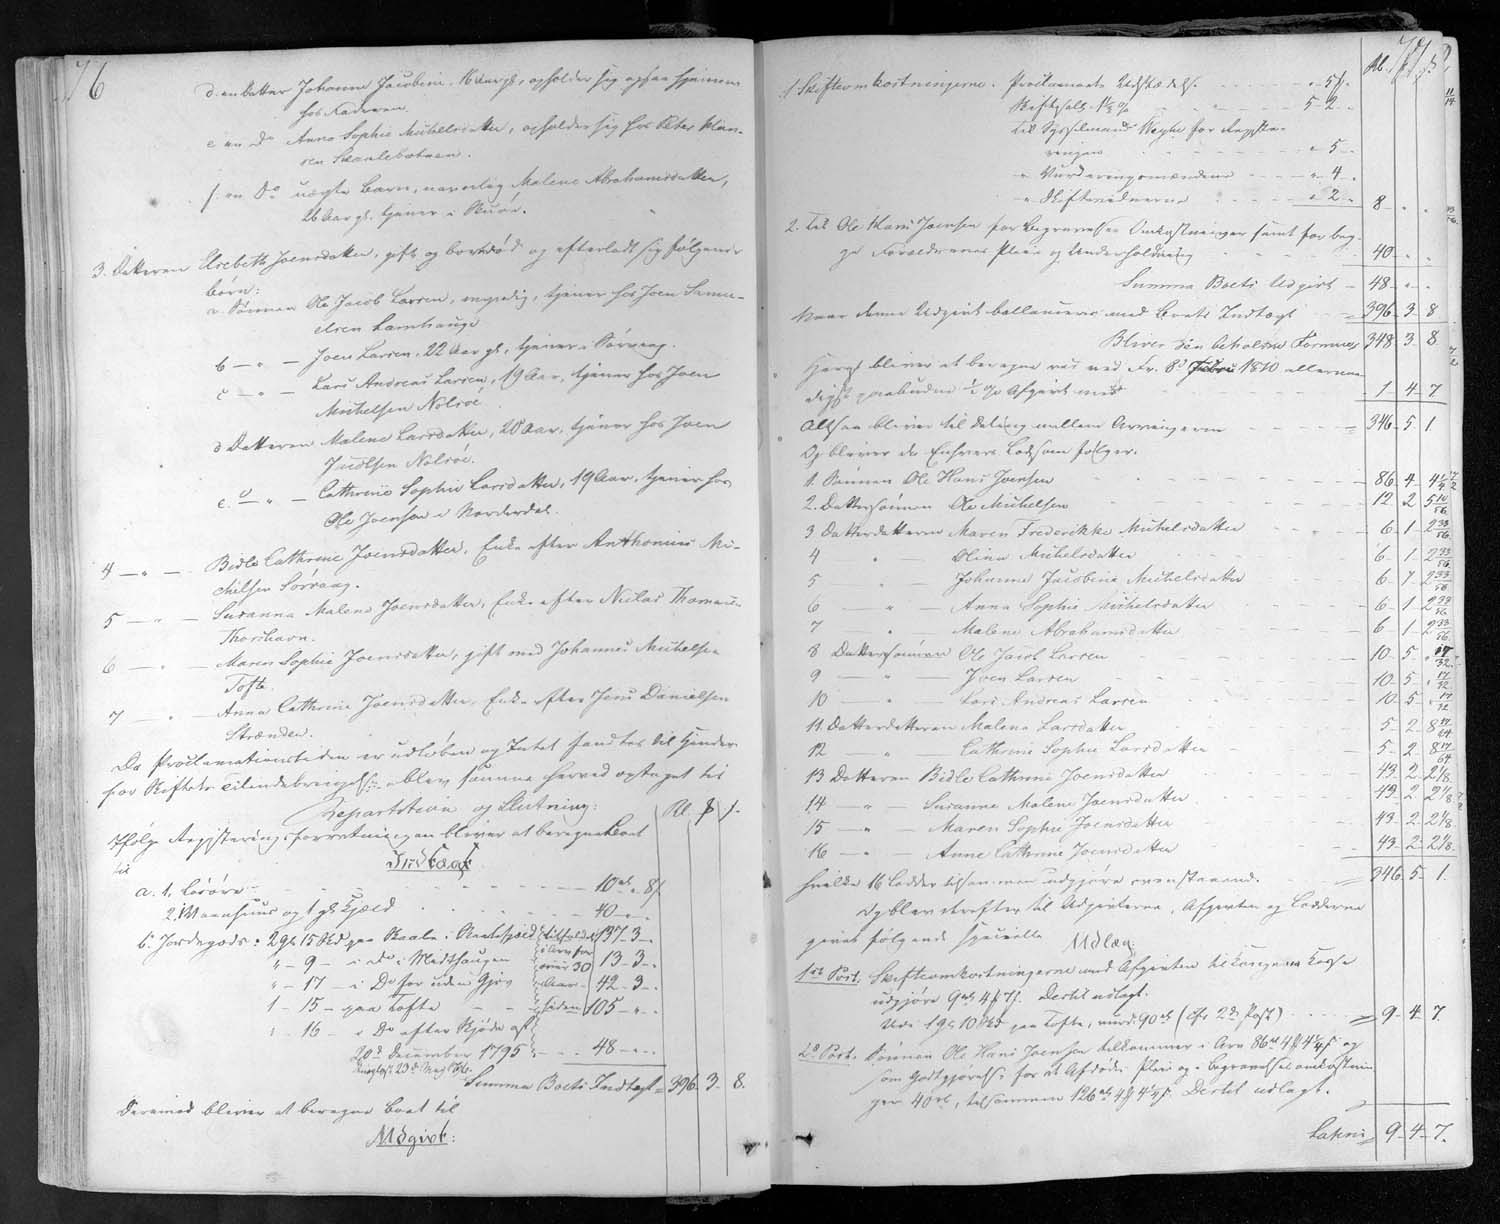 76
d. en Datter Johanne Jacobine, 16 Aar gl., opholder sig ogsaa hjemme
hos Faderen
e en Do Anna Sophie Michelsdatter, opholder sig hos Peter
f. en Do uægte Barn, navnlig Malene Abrahamsdatter,
26 Aar gl. tjener i
3. Datteren Elsebeth Joensdatter, gift og bortdød og efterladt sig følgende
børn:
a. Sønnen Ole Jacob Larsen, myndig, tjener hos Joen Samu-
elsen Lamhauge
b - " - Joen Larsen, 22 Aar gl., tjener i Sørvaag.
c - " - Lars Andreas Larsen, 19 Aar, tjener hos Joen
Michelsen Nolsøe.
d Datteren Malene Larsdatter, 20 Aar, tjener hos Joen
Jacobsen Nolsøe.
e. " - Cathrine Sophie Larsdatter, 19 Aar, tjener hos
Ole Joensen i Norderdal.
4 - " - Bidle Cathrine Joensdatter, Enke efter Anthonius Mi-
chelsen Sørvaag.
5 - " - Susanna Malene Joensdatter, Enke efter Niclas
Thorshavn.
6 - " - Maren Sophie Joensdatter, gift med Johannes Michelsen
Tofte.
7 - " - Anna Cathrine Joensdatter, Enke efter Jens Danielsen
Strænden.
Da Proclamationstiden er udløben og Intet fandtes til Hinder
for Skiftets Tilendebringelse, blev samme herved optaget til
Repartition og Slutning:
Rd. ß
Ifølge Registeringsforretningen bliver at beregne Boet
til
Indtægt
a. 1. Løsøre - 10 " 8
2. Vaanhuus og 1 gl. Hjeld 40 " "
b. Jordegods: 2 gl 15 Skd paa Skaale i 137 - 3 -
" - 9 - i Do i Midthaugen 13 - 3 -
" - 17 - i Do for uden Gjov 42 - 3 -
1 - 15 - paa Tofte 105 - " -
tilfaldet i Arv for over 30 Aar siden
" - 16 - i Do efter Skjøde af
20d December 1795 48 - " -
Summa Boets Indtægt = 396 - 3 - 8.
Derimod bliver at beregne Boet til
Udgivt:
77
Rd. ß
1. Skifteomkostningerne. Proclamaets Udstædelse
Skiftesalr. 1½ % 5 - 2
til Sysselmand Weyhe for Registe-
ringen " 5 -
" Vurderingsmændene " 4 -
" Skiftevidnerne " 2 - 8 - " "
2. Til Ole Hans Joensen for Begravelses Omkostninger samt for beg-
ge Forældrenes Pleie og Underholdning 40 - " "
Summa Boets Udgivt - 48 - " -
Naar denne Udgivt ballanceres med Boets Indtægt 396 - 3 - 8
Bliver den beholdne Formue 348 - 3 - 8
Heraf bliver at beregne det ved Fr. 8d Febr 1810 allernaa-
digst paabudne ½ % Afgivt med 1 - 4 - 7
Altsaa bliver til Deling mellem Arvingerne 346 - 5 - 1.
Og bliver da Enhvers Lod som følger.
1. Sønnen Ole Hans Joensen 86 - 4 - 4¼
2. Dattersønnen Ole Michelsen 12 - 2 - 5 10/56
3 Datterdatteren Maren Frederikke Michelsdatter 6 - 1 - 2 33/56
4 " - Olina Michelsdatter 6 - 1 - 2 33/56
5 " - Johanne Jacobine Michelsdatter 6 - 1 - 2 33/56
6 " - Anna Sophie Michelsdatter 6 - 1 - 2 33/56
7 " - Malene Abrahamsdatter 6 - 1 - 2 33/56
8 Dattersønnen Ole Jacob Larsen 10 - 5 - " 17/32
9 - " - Joen Larsen 10 - 5 - " 17/32
10 - " - Lars Andreas Larsen 10 - 5 - " 17/32
11. Datterdatteren Malene Larsdatter 5 - 2 - 8 17/64
12 " Cathrine Sophie Larsdatter 5 - 2 - 8 17/64
13 Datteren Bidle Cathrine Joensdatter 43 - 2 - 2⅛
14 - " - Susanne Malene Joensdatter 43 - 2 - 2⅛
15 - " - Maren Sophie Joensdatter 43 - 2 - 2⅛
16 - " - Anne Cathrine Joensdatter 43 - 2 - 2⅛
hvilke 16 Lodder tilsammen udgjøre ovenstaaende = 346 - 5 - 1.
Og blev derefter til Udgivterne, Afgivten og Lodderne
gjort følgende specielle Udlæg:
1ste Post. Skifteomkostningerne med Afgivten til Kongens Kasse
udgjøre 9 Rd 4 ß 7 . Dertil udlagt.
Udi 1 gl 10 Skd paa Tofte, vurd. 90 Rd (cfr 2d Post) = 9 - 4 - 7.
2d Post. Sønnen Ole Hans Joensen tilkommer i Arv 86 Rd 4 ß 4¼ og
som Godtgjørelse for de Afdødes Pleie og Begravelsesomkostnin-
ger 40 Rd, tilsammen 126 Rd 4 ß 4¼ . Dertil udlagt.
Lateris = 9 - 4 - 7.